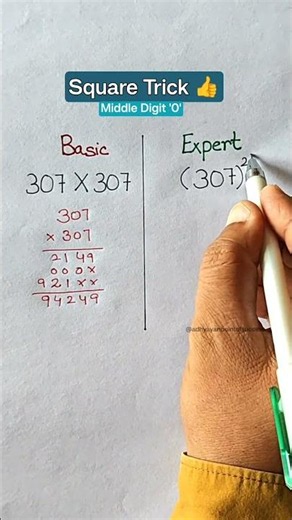 Square Trick 👍
Middle Digit '0'
Basic
307 X 307
307
x 307
2149
000x
921xx
94249
Expert
(307)²